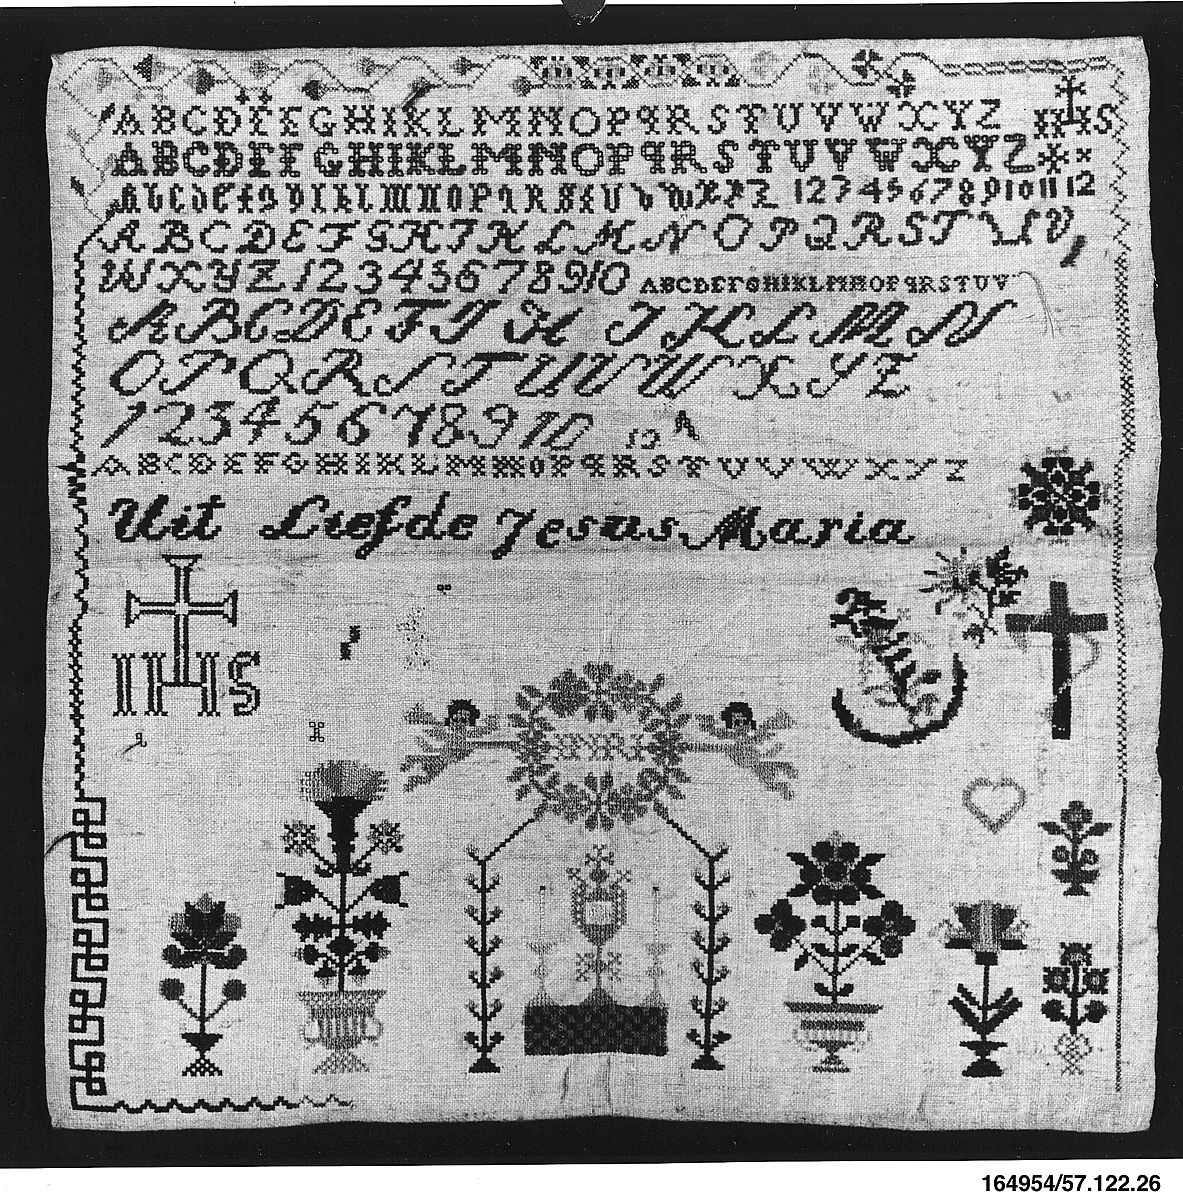 ABCDEFGHIKLMNOPQRSTUVWXYZ IHS
ABCDEFGHIKLMNOPQRSTUVWXYZ
123456789101112
ABCDEFGHIKLMNOPQRSTUV
WXYZ12345678910 ABCDEFGHIKLMNOPQRSTUV
ABCDEFGHIKLMN
OPQRSTUVWXYZ
12345678910 10 A
ABCDEFGHIKLMNOPQRSTUVWXYZ
Uit Liefde Jesus Maria
IHS
164954/57.122.26